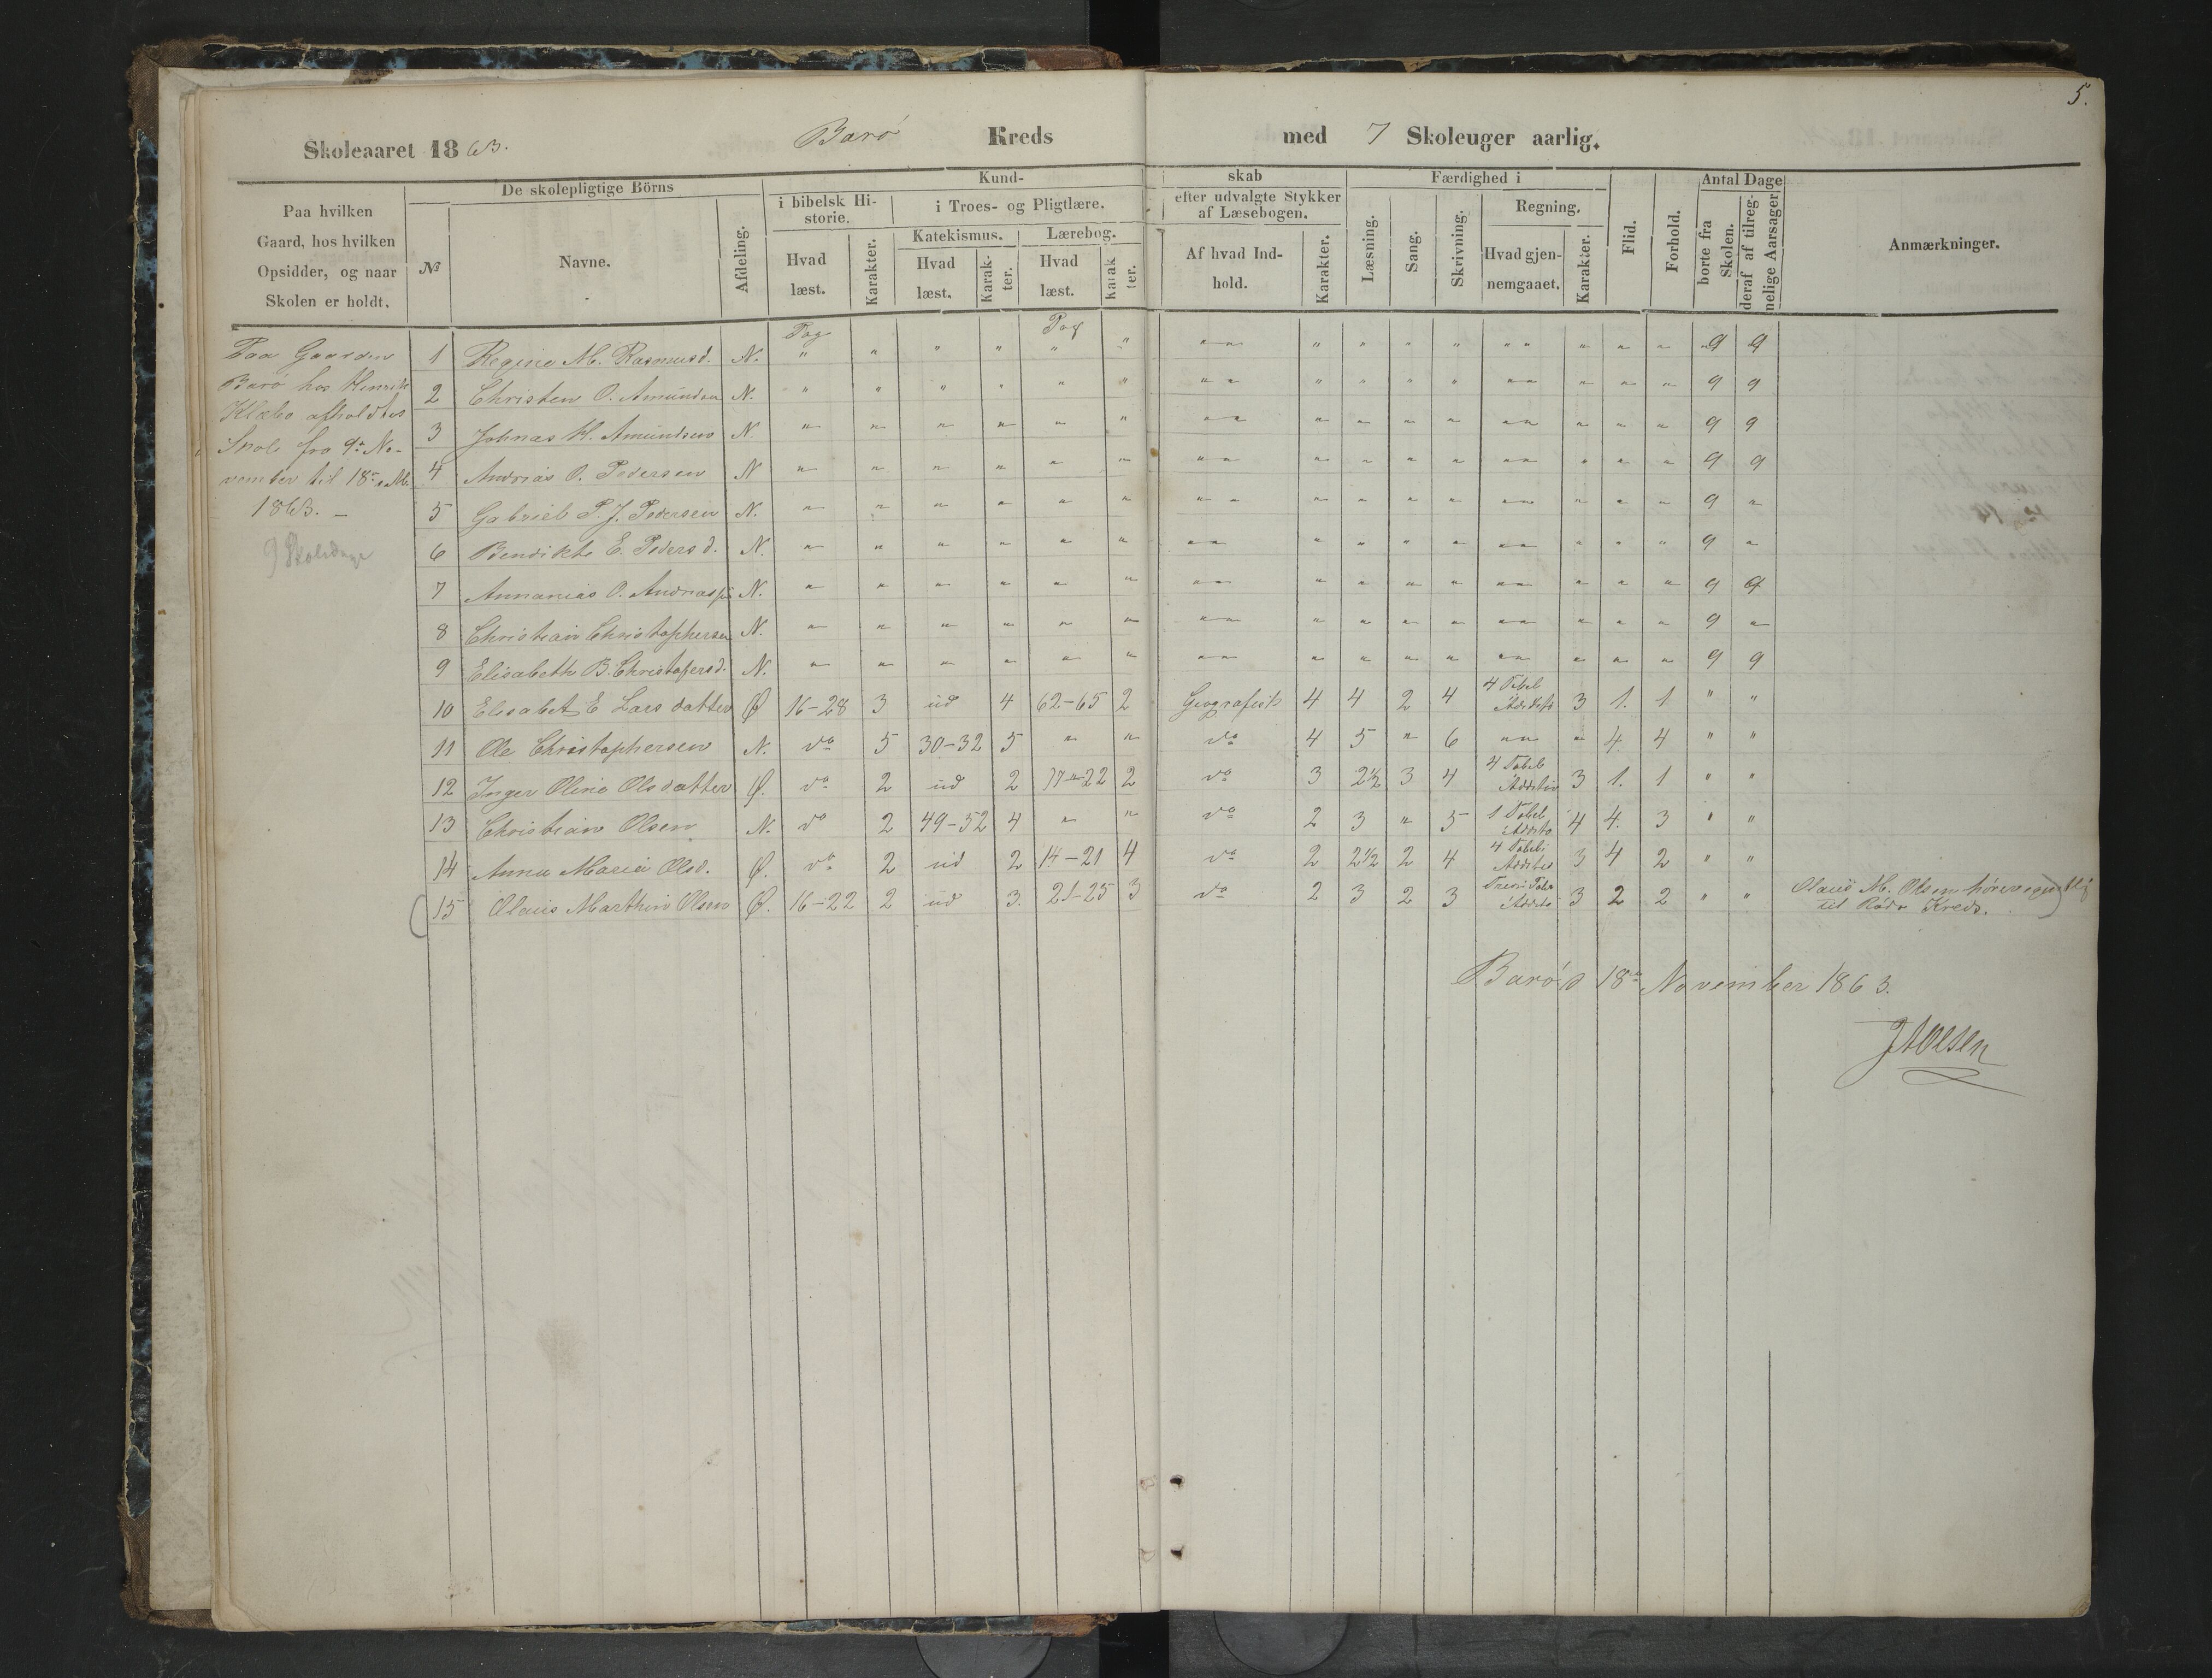 5.
Skoleaaret 1863. Barø Kreds med 7 Skoleuger aarlig.
Paa hvilken Gaard, hos hvilken Opsidder, og naar Skolen er holdt.
De skolepligtige Börns
№ Navne. Afdeling.
Kund-skab
i bibelsk Hi-storie. i Troes- og Pligtlære. efter udvalgte Stykker af Læsebogen.
Katekismus. Lærebog.
Hvad læst. Karakter. Hvad læst. Karak-ter. Hvad læst. Karak ter. Af hvad Ind-hold. Karakter.
Færdighed i
Læsning. Sang. Skrivning. Regning.
Hvad gjen-nemgaaet. Karakter.
Flid. Forhold.
Antal Dage
borte fra Skolen. deraf af tilreg-nelige Aarsager.
Anmærkninger.
Paa Gaarden
Barø hos Henrik
Klæbo afholdtes
Skole fra 9de No-
vember til 18de s. M.
1863. –
9 Skoledage
Pag Pag
1 Regine M. Rasmusd. N. " " " " " " " " " " " " " " " " " " 9 9
2 Christen O. Amundsen N. " " " " " " " " " " " " " " " " " " 9 9
3 Johnas H. Amundsen N. " " " " " " " " " " " " " " " " " " 9 9
4 Andreas O. Pedersen N " " " " " " " " " " " " " " " " " " 9 9
5 Gabriel P. J. Pedersen N. " " " " " " " " " " " " " " " " " " 9 "
6 Bendikte E. Pedersd. N. " " " " " " " " " " " " " " " " " " 9 "
7 Annanias O. Andreass N. " " " " " " " " " " " " " " " " " " 9 9
8 Christian Christophersen N. " " " " " " " " " " " " " " " " " " 9 "
9 Elisabeth B. Christofersd. N. " " " " " " " " " " " " " " " " " " 9 9
10 Elisabet E Lars datter Ø 16-28 3 ud 4 62-65 2 Geografisk 4 4 2 4 4 Tabel i Addit 3 1. 1 " "
11 Ole Christophersen N. do 5 30-32 5 " " do 4 5 " 6 " " " 4. 4 " "
12 Inger Oline Olsdatter Ø. do 2 ud 2 17-22 2 do 3 2½ 3 4 4 Tabel i Addition 3 1. 1 " "
13 Christian Olsen N. do 2 49-52 4 " " do 2 3 " 5 1 Tabel i Addit 4 4. 3 " "
14 Anna Maria Olsd. Ø. do 2 ud 2 14-21 4 do 2 2½ 2 4 4 Tabel i Addition 3 4 2 " "
(15 Olaus Marthin Olsen Ø. 16-22 2 ud 3. 21-25 3 do 2 3 2 3 Tabe i Addit 3 2 2 " " Olaus M. Olsen hører egentlig)
til Rödø Kreds.
Barø d 18de November 1863.
J A Olsen